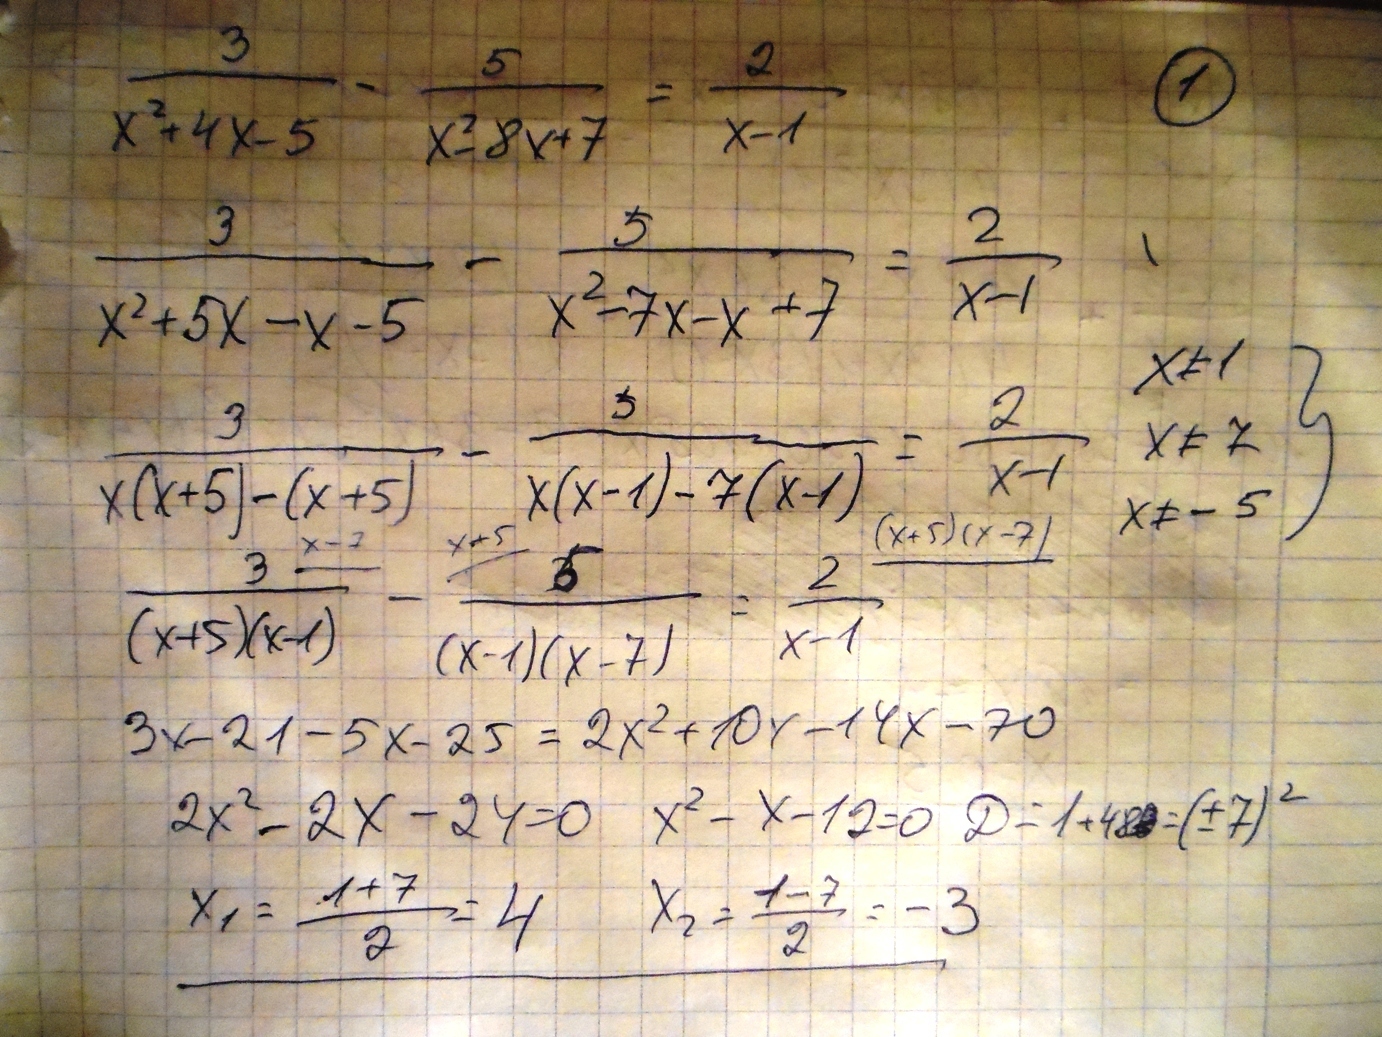 3/(x²+4x-5) - 5/(x²-8x+7) = 2/(x-1) 1
3/(x²+5x-x-5) - 5/(x²-7x-x+7) = 2/(x-1)
x≠1
x≠7
x≠-5
3/(x(x+5)-(x+5)) - 5/(x(x-1)-7(x-1)) = 2/(x-1)
x-7 x+5 (x+5)(x-7)
3/((x+5)(x-1)) - 5/((x-1)(x-7)) = 2/(x-1)
3x-21-5x-25=2x²+10x-14x-70
2x²-2x-24=0 x²-x-12=0 D=1+48=(±7)²
x₁=(1+7)/2=4 x₂=(1-7)/2=-3